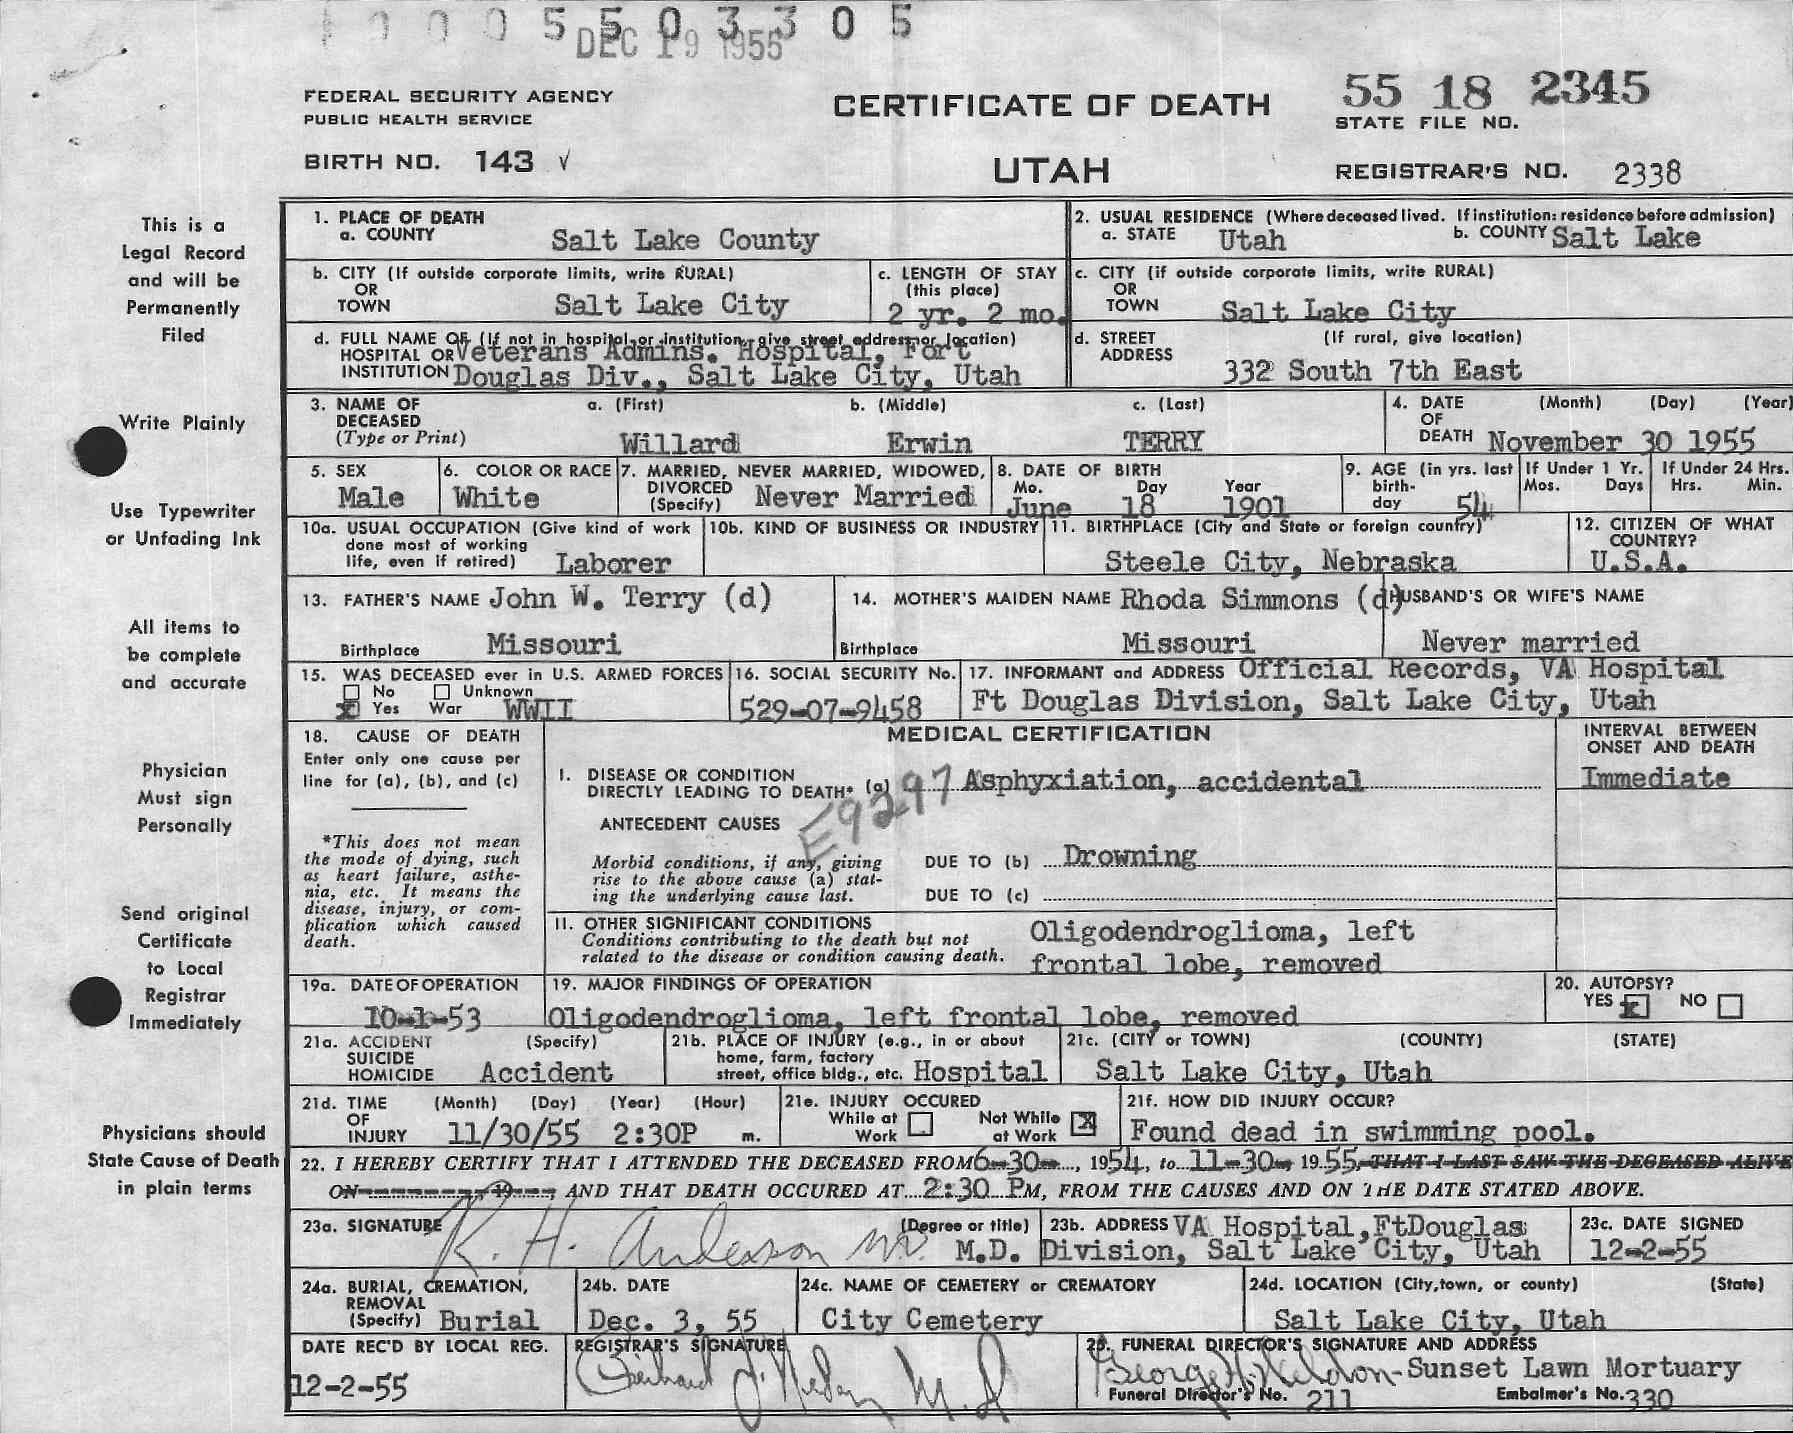 1 0 0 0 5 5 0 3 3 0 5
DEC 19 1955
FEDERAL SECURITY AGENCY
PUBLIC HEALTH SERVICE
BIRTH NO. 143 √
CERTIFICATE OF DEATH
UTAH
55 18 2345
STATE FILE NO.
REGISTRAR'S NO. 2338
This is a
Legal Record
and will be
Permanently
Filed
Write Plainly
Use Typewriter
or Unfading Ink
All items to
be complete
and accurate
Physician
Must sign
Personally
Send original
Certificate
to Local
Registrar
Immediately
Physicians should
State Cause of Death
in plain terms
1. PLACE OF DEATH
a. COUNTY Salt Lake County
2. USUAL RESIDENCE (Where deceased lived. If institution: residence before admission)
a. STATE Utah b. COUNTY Salt Lake
b. CITY (If outside corporate limits, write RURAL)
OR
TOWN Salt Lake City
c. LENGTH OF STAY
(this place)
2 yr. 2 mo.
c. CITY (if outside corporate limits, write RURAL)
OR
TOWN Salt Lake City
d. FULL NAME OF (If not in hospital or institution, give street address or location)
HOSPITAL OR Veterans Admins. Hospital, Fort
INSTITUTION Douglas Div., Salt Lake City, Utah
d. STREET (If rural, give location)
ADDRESS
332 South 7th East
3. NAME OF a. (First) b. (Middle) c. (Last)
DECEASED
(Type or Print) Willard Erwin TERRY
4. DATE (Month) (Day) (Year)
OF
DEATH November 30 1955
5. SEX
Male
6. COLOR OR RACE
White
7. MARRIED, NEVER MARRIED, WIDOWED,
DIVORCED
(Specify) Never Married
8. DATE OF BIRTH
Mo. Day Year
June 18 1901
9. AGE (in yrs. last
birth-
day 54
If Under 1 Yr.
Mos. Days
If Under 24 Hrs.
Hrs. Min.
10a. USUAL OCCUPATION (Give kind of work
done most of working
life, even if retired) Laborer
10b. KIND OF BUSINESS OR INDUSTRY
11. BIRTHPLACE (City and State or foreign country)
Steele City, Nebraska
12. CITIZEN OF WHAT
COUNTRY?
U.S.A.
13. FATHER'S NAME John W. Terry (d)
Birthplace Missouri
14. MOTHER'S MAIDEN NAME Rhoda Simmons (d)
Birthplace Missouri
HUSBAND'S OR WIFE'S NAME
Never married
15. WAS DECEASED ever in U.S. ARMED FORCES
No Unknown
x Yes War WWII
16. SOCIAL SECURITY No.
529-07-9458
17. INFORMANT and ADDRESS Official Records, VA Hospital
Ft Douglas Division, Salt Lake City, Utah
18. CAUSE OF DEATH
Enter only one cause per
line for (a), (b), and (c)
*This does not mean
the mode of dying, such
as heart failure, asthe-
nia, etc. It means the
disease, injury, or com-
plication which caused
death.
MEDICAL CERTIFICATION
INTERVAL BETWEEN
ONSET AND DEATH
I. DISEASE OR CONDITION
DIRECTLY LEADING TO DEATH* (a) Asphyxiation, accidental
Immediate
E9297
ANTECEDENT CAUSES
Morbid conditions, if any, giving
rise to the above cause (a) stat-
ing the underlying cause last.
DUE TO (b) Drowning
DUE TO (c)
II. OTHER SIGNIFICANT CONDITIONS
Conditions contributing to the death but not
related to the disease or condition causing death.
Oligodendroglioma, left
frontal lobe, removed
19a. DATE OF OPERATION
10-1-53
19. MAJOR FINDINGS OF OPERATION
Oligodendroglioma, left frontal lobe, removed
20. AUTOPSY?
YES x NO
21a. ACCIDENT (Specify)
SUICIDE
HOMICIDE Accident
21b. PLACE OF INJURY (e.g., in or about
home, farm, factory
street, office bldg., etc. Hospital
21c. (CITY or TOWN) (COUNTY) (STATE)
Salt Lake City, Utah
21d. TIME (Month) (Day) (Year) (Hour)
OF
INJURY 11/30/55 2:30P m.
21e. INJURY OCCURED
While at Work
Not While at Work X
21f. HOW DID INJURY OCCUR?
Found dead in swimming pool.
22. I HEREBY CERTIFY THAT I ATTENDED THE DECEASED FROM 6-30-, 1954, to 11-30-, 1955, THAT I LAST SAW THE DECEASED ALIVE
ON 19 , AND THAT DEATH OCCURED AT 2:30 PM, FROM THE CAUSES AND ON THE DATE STATED ABOVE.
23a. SIGNATURE (Degree or title)
R. H. Anderson MD. M.D.
23b. ADDRESS VA Hospital, FtDouglas
Division, Salt Lake City, Utah
23c. DATE SIGNED
12-2-55
24a. BURIAL, CREMATION,
REMOVAL
(Specify) Burial
24b. DATE
Dec. 3, 55
24c. NAME OF CEMETERY or CREMATORY
City Cemetery
24d. LOCATION (City, town, or county) (State)
Salt Lake City, Utah
DATE REC'D BY LOCAL REG.
12-2-55
REGISTRAR'S SIGNATURE
M.D
25. FUNERAL DIRECTOR'S SIGNATURE AND ADDRESS
George -Sunset Lawn Mortuary
Funeral Director's No. 211 Embalmer's No. 330